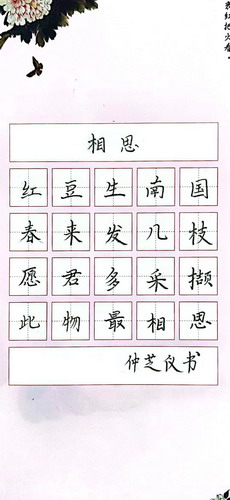 相思
红豆生南国
春来发几枝
愿君多采撷
此物最相思
仲芝仪书